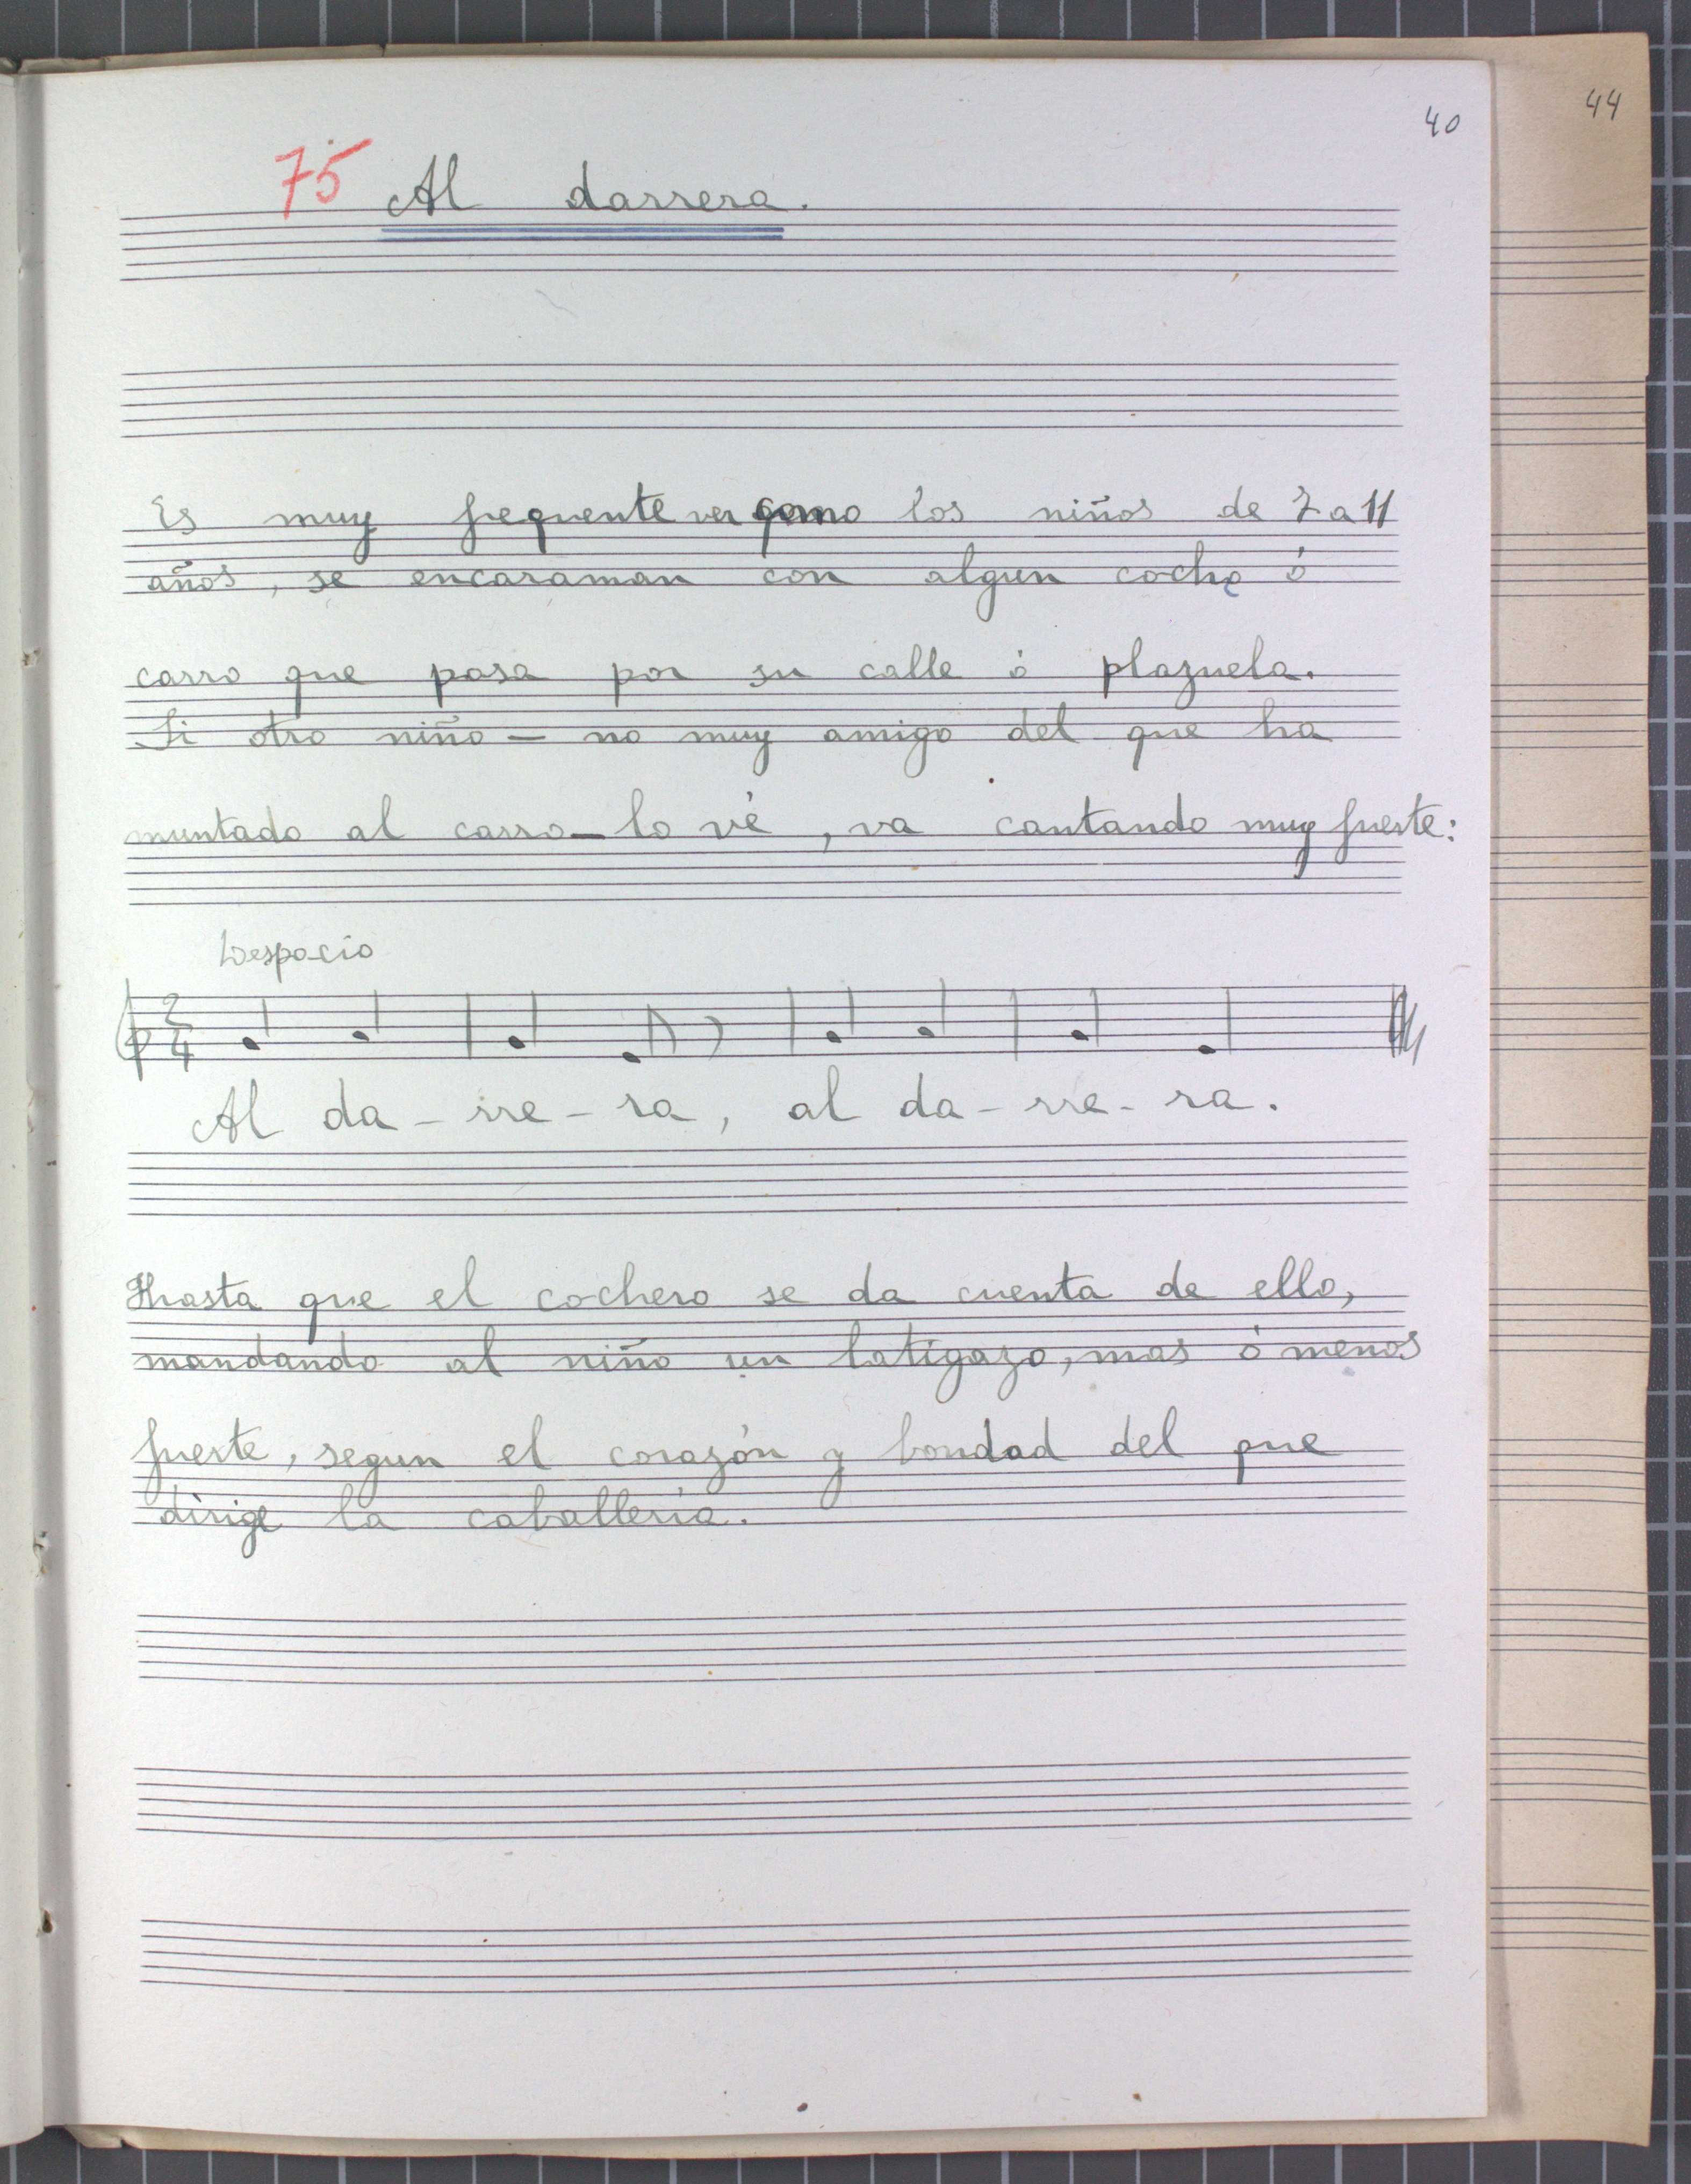 44
40
75 Al darrera.
Es muy frequente ver como los niños de 7 a 11
años, se encaraman con algun coche ó
carro que pasa por su calle ó plazuela.
Si otro niño - no muy amigo del que ha
muntado al carro - lo vé, va cantando muy fuerte:
Despacio
2
4
Al da - rre - ra, al da - rre - ra.
Hasta que el cochero se da cuenta de ello,
mandando al niño un latigazo, mas ó menos
fuerte, segun el corazón y bondad del que
dirige la caballería.